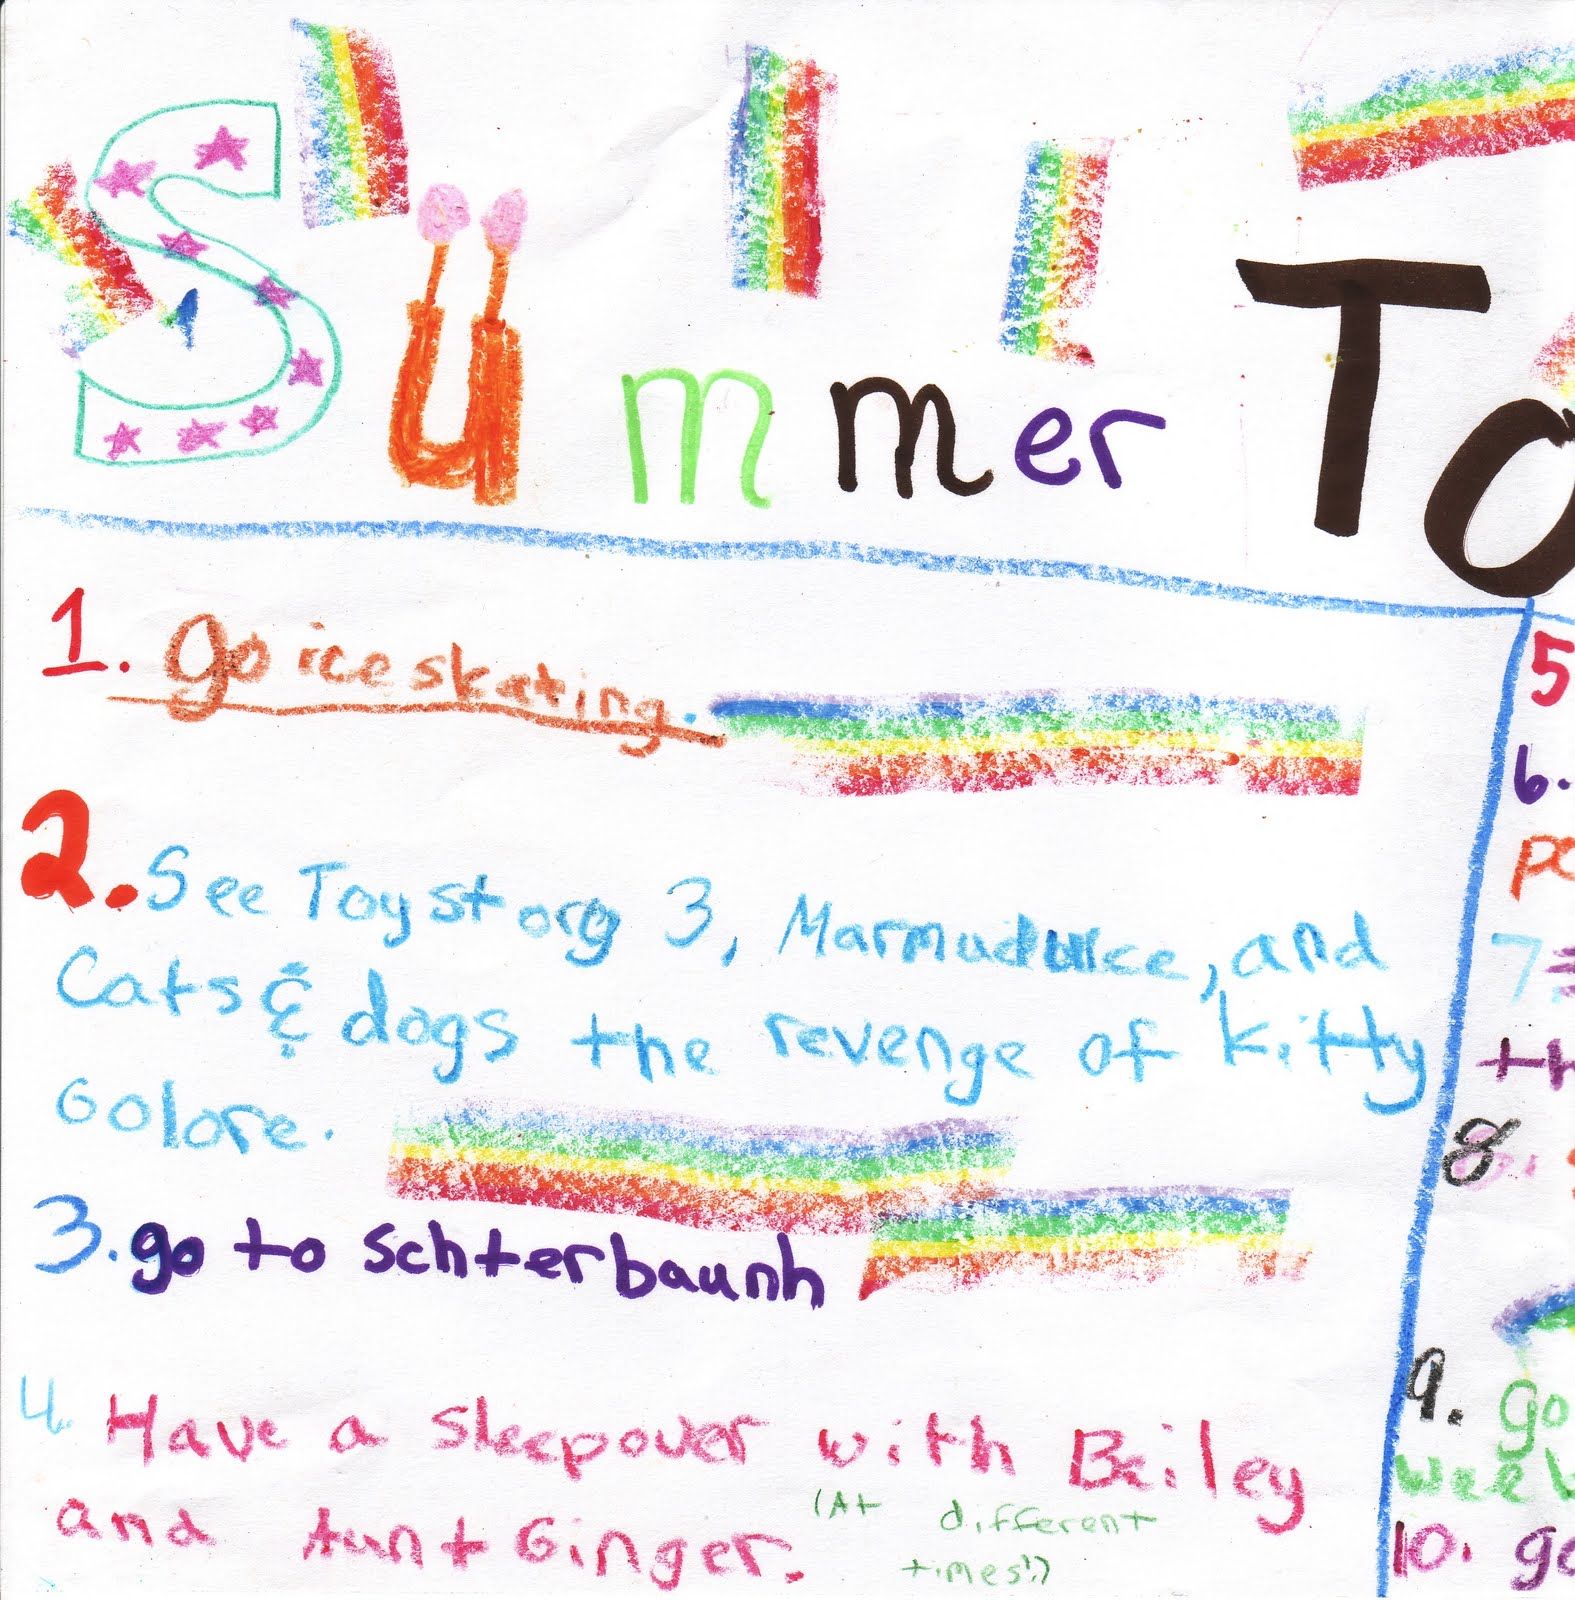 Summer To
1. go ice skating.
2. See Toy story 3, Marmaduke, and
Cats & dogs the revenge of kitty
Golore.
3. go to schterbaunh
4. Have a sleepover with Bailey
and Aunt Ginger. (At different
times!)
5
6.
po
7.
th
8.
9. go
week
10. go